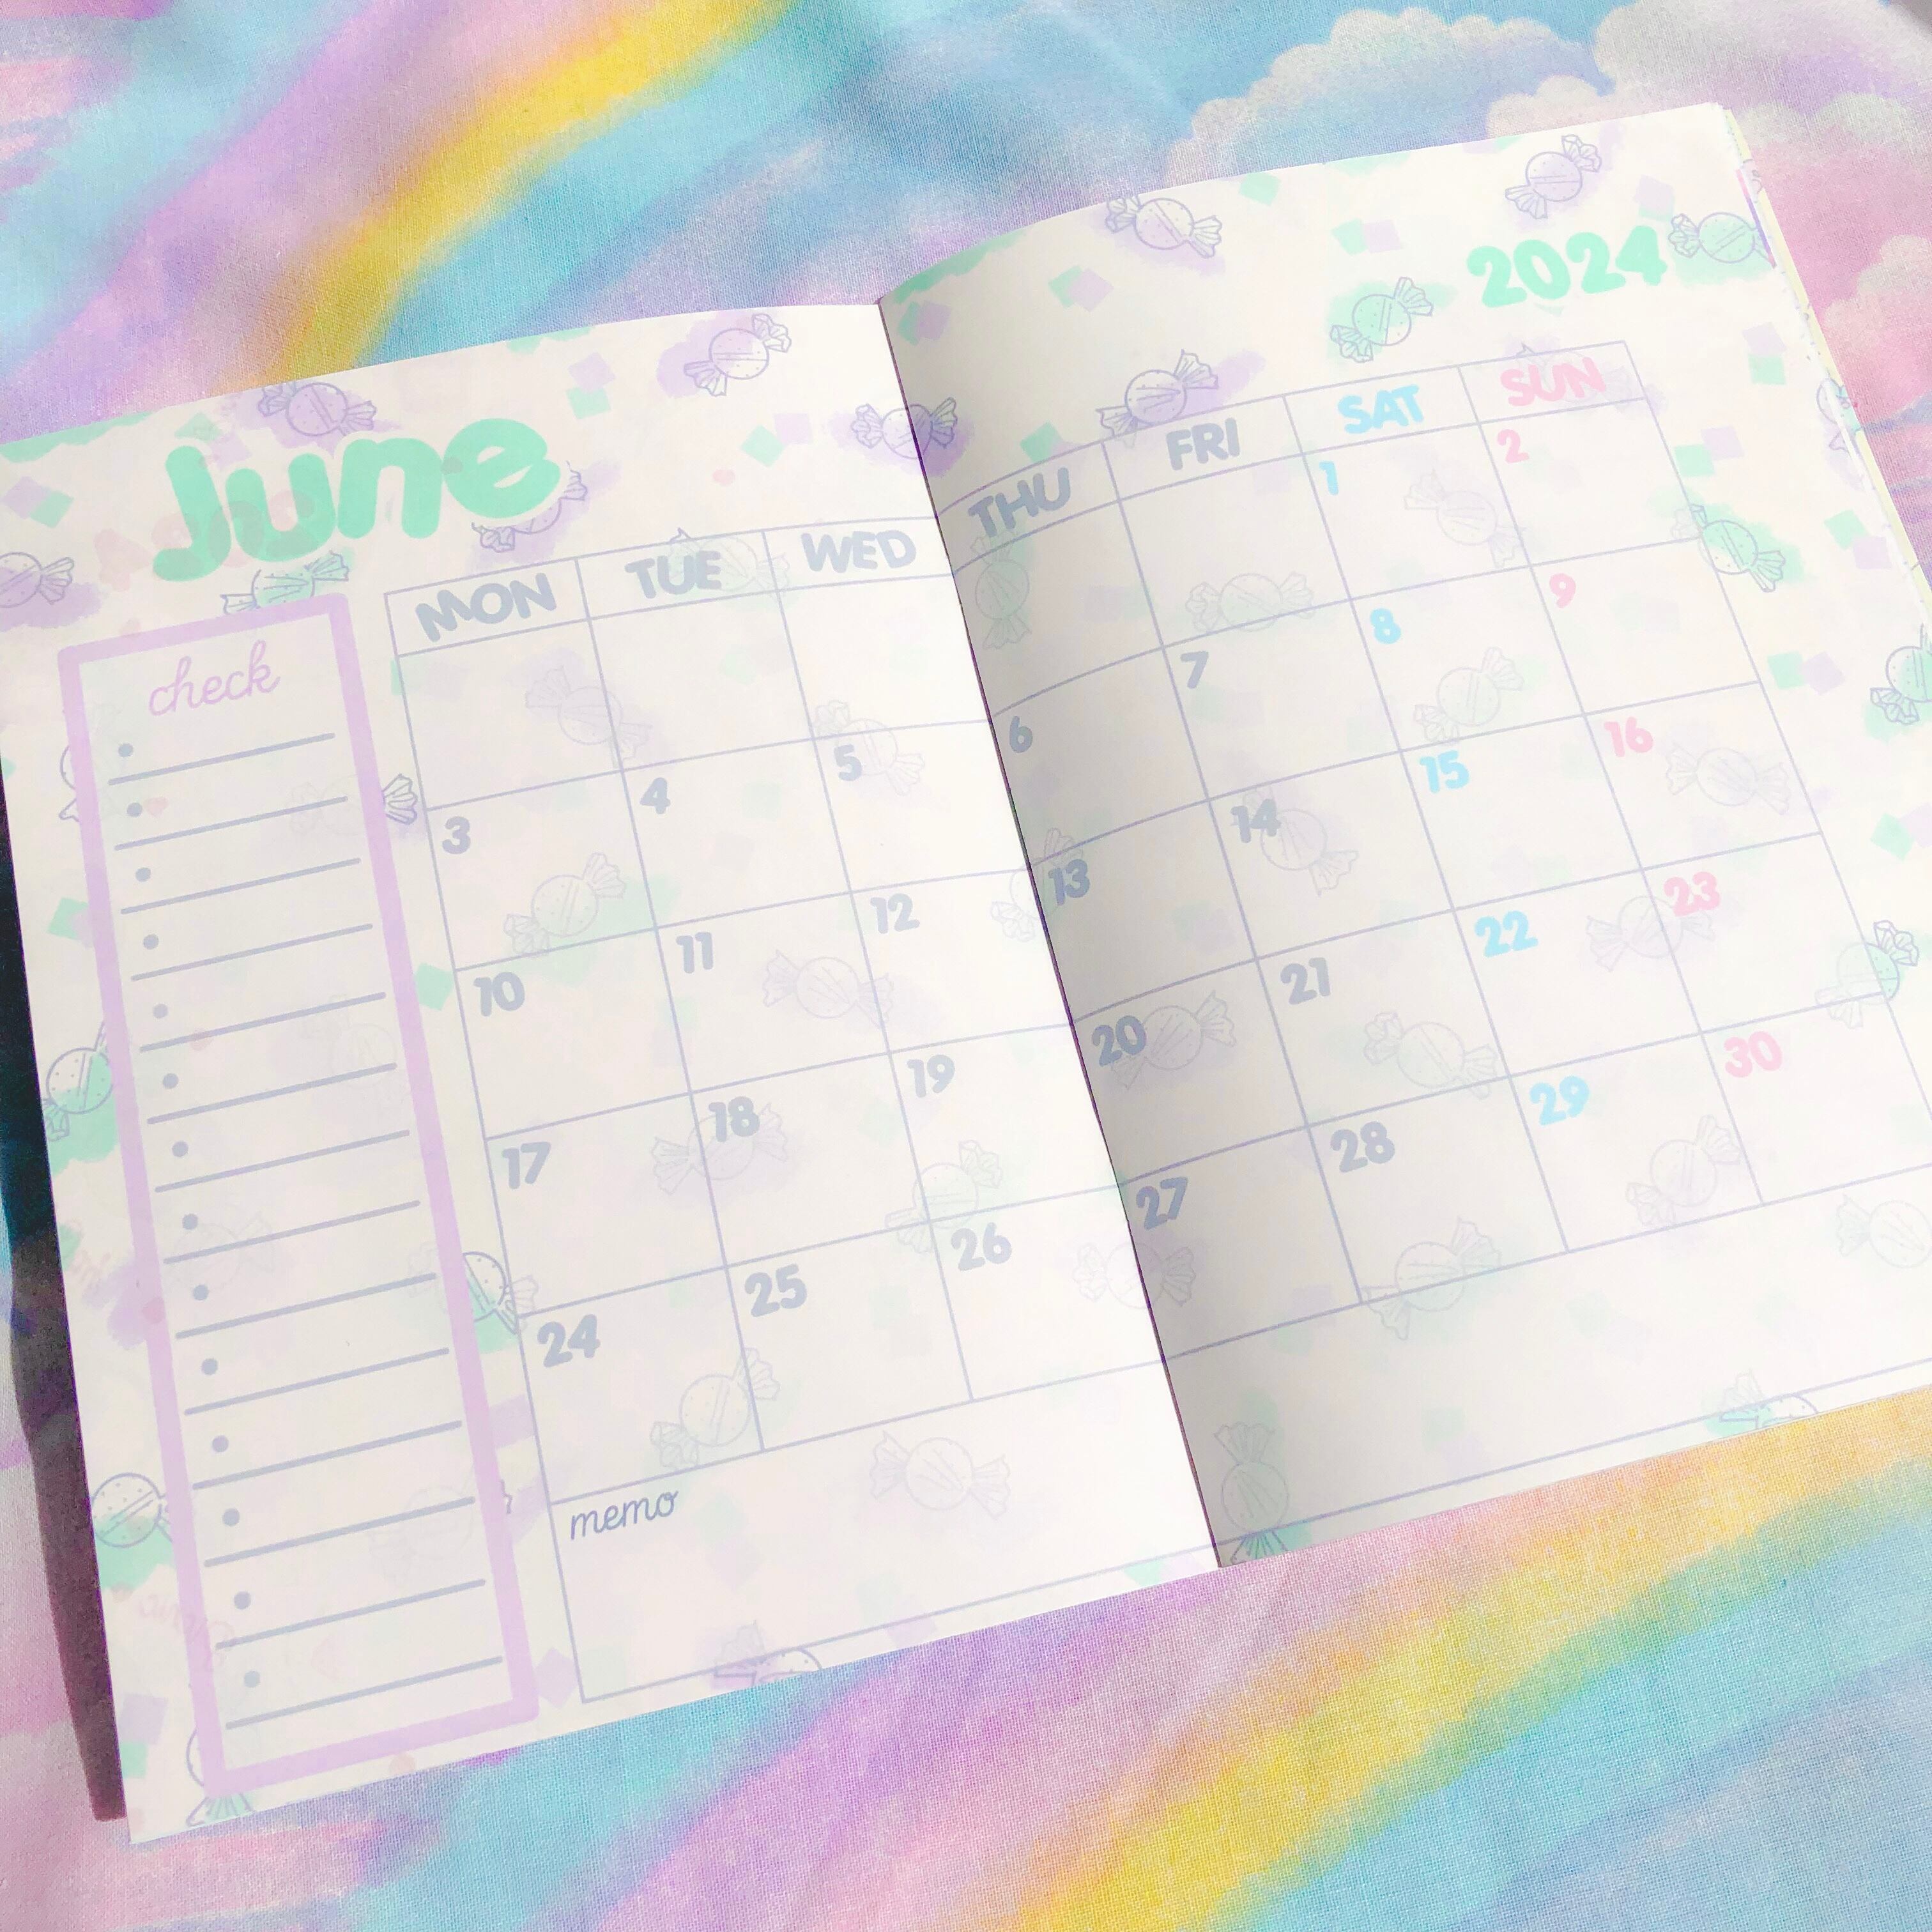 June
2024
check
MON TUE WED THU FRI SAT SUN
1 2
3 4 5 6 7 8 9
10 11 12 13 14 15 16
17 18 19 20 21 22 23
24 25 26 27 28 29 30
memo